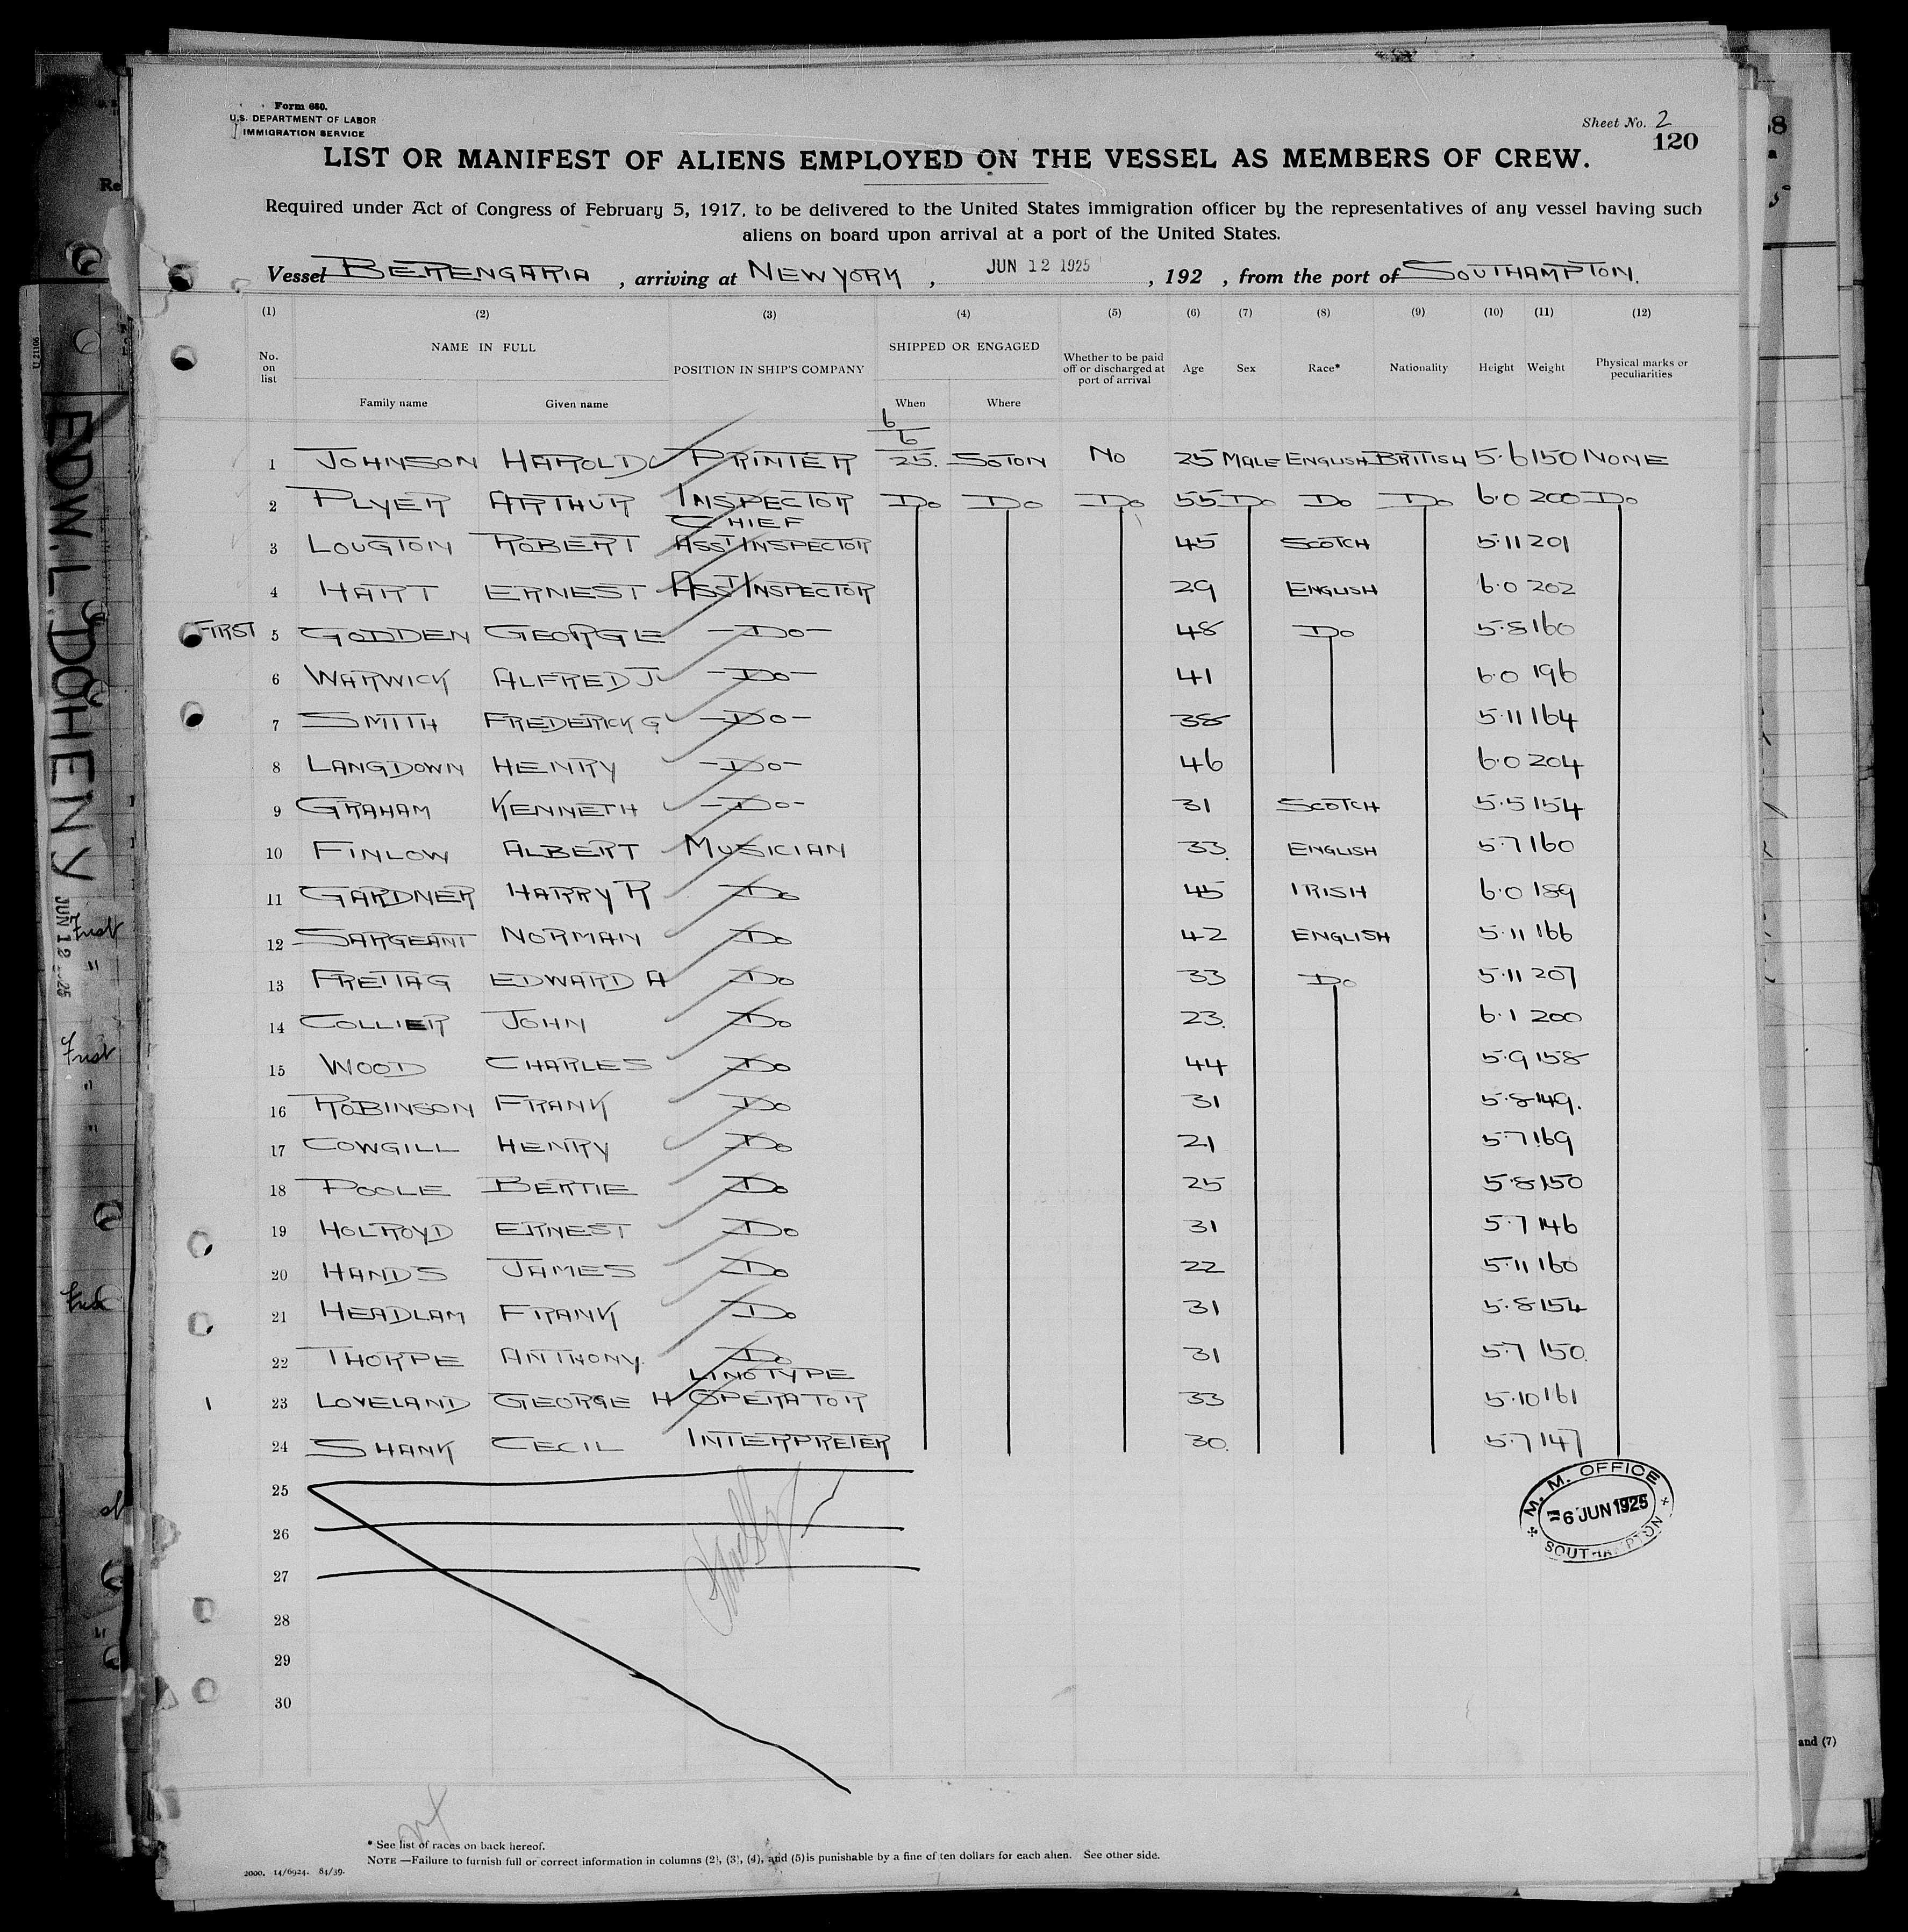 Form 680.
U.S. DEPARTMENT OF LABOR
IMMIGRATION SERVICE
Sheet No. 2
120
LIST OR MANIFEST OF ALIENS EMPLOYED ON THE VESSEL AS MEMBERS OF CREW.
Required under Act of Congress of February 5, 1917, to be delivered to the United States immigration officer by the representatives of any vessel having such
aliens on board upon arrival at a port of the United States.
Vessel BERENGARIA , arriving at NEW YORK , JUN 12 1925 , 192 , from the port of SOUTHAMPTON.
(1) (2) (3) (4) (5) (6) (7) (8) (9) (10) (11) (12)
No. on list NAME IN FULL POSITION IN SHIP'S COMPANY SHIPPED OR ENGAGED Whether to be paid off or discharged at port of arrival Age Sex Race* Nationality Height Weight Physical marks or peculiarities
Family name Given name When Where
6
6
1 JOHNSON HAROLD PRINTER 25. SOTON NO 25 MALE ENGLISH BRITISH 5.6 150 NONE
2 PLYER ARTHUR INSPECTOR DO DO DO 55 DO DO DO 6.0 200 DO
CHIEF
3 LOUGTON ROBERT ASST INSPECTOR 45 SCOTCH 5.11 201
4 HART ERNEST ASST INSPECTOR 29 ENGLISH 6.0 202
FIRST 5 GODDEN GEORGE -DO- 48 DO 5.8 160
6 WARWICK ALFRED J -DO- 41 6.0 196
7 SMITH FREDERICK G -DO- 38 5.11 164
8 LANGDOWN HENRY -DO- 46 6.0 204
9 GRAHAM KENNETH -DO- 31 SCOTCH 5.5 154
10 FINLOW ALBERT MUSICIAN 33. ENGLISH 5.7 160
11 GARDNER HARRY R DO 45 IRISH 6.0 189
12 SARGEANT NORMAN DO 42 ENGLISH 5.11 166
13 FREITAG EDWARD A DO 33 DO 5.11 207
14 COLLIER JOHN DO 23. 6.1 200
15 WOOD CHARLES DO 44 5.9 158
16 ROBINSON FRANK DO 31 5.8 149.
17 COWGILL HENRY DO 21 5.7 169
18 POOLE BERTIE DO 25 5.8 150
19 HOLROYD ERNEST DO 31 5.7 146
20 HANDS JAMES DO 22 5.11 160
21 HEADLAM FRANK DO 31 5.8 154
22 THORPE ANTHONY. DO 31 5.7 150.
LINOTYPE
1 23 LOVELAND GEORGE H OPERATOR 33 5.10 161
24 SHANK CECIL INTERPRETER 30. 5.7 147
25
26
27
28
29
30
M. M. OFFICE
6 JUN 1925
SOUTHAMPTON
* See list of races on back hereof.
NOTE—Failure to furnish full or correct information in columns (2), (3), (4), and (5) is punishable by a fine of ten dollars for each alien. See other side.
2000. 14/6924. 84/39.
EDW. L. DOHENY
JUN 12 1925
U 21106
Re
First
"
First
"
"
and (7)